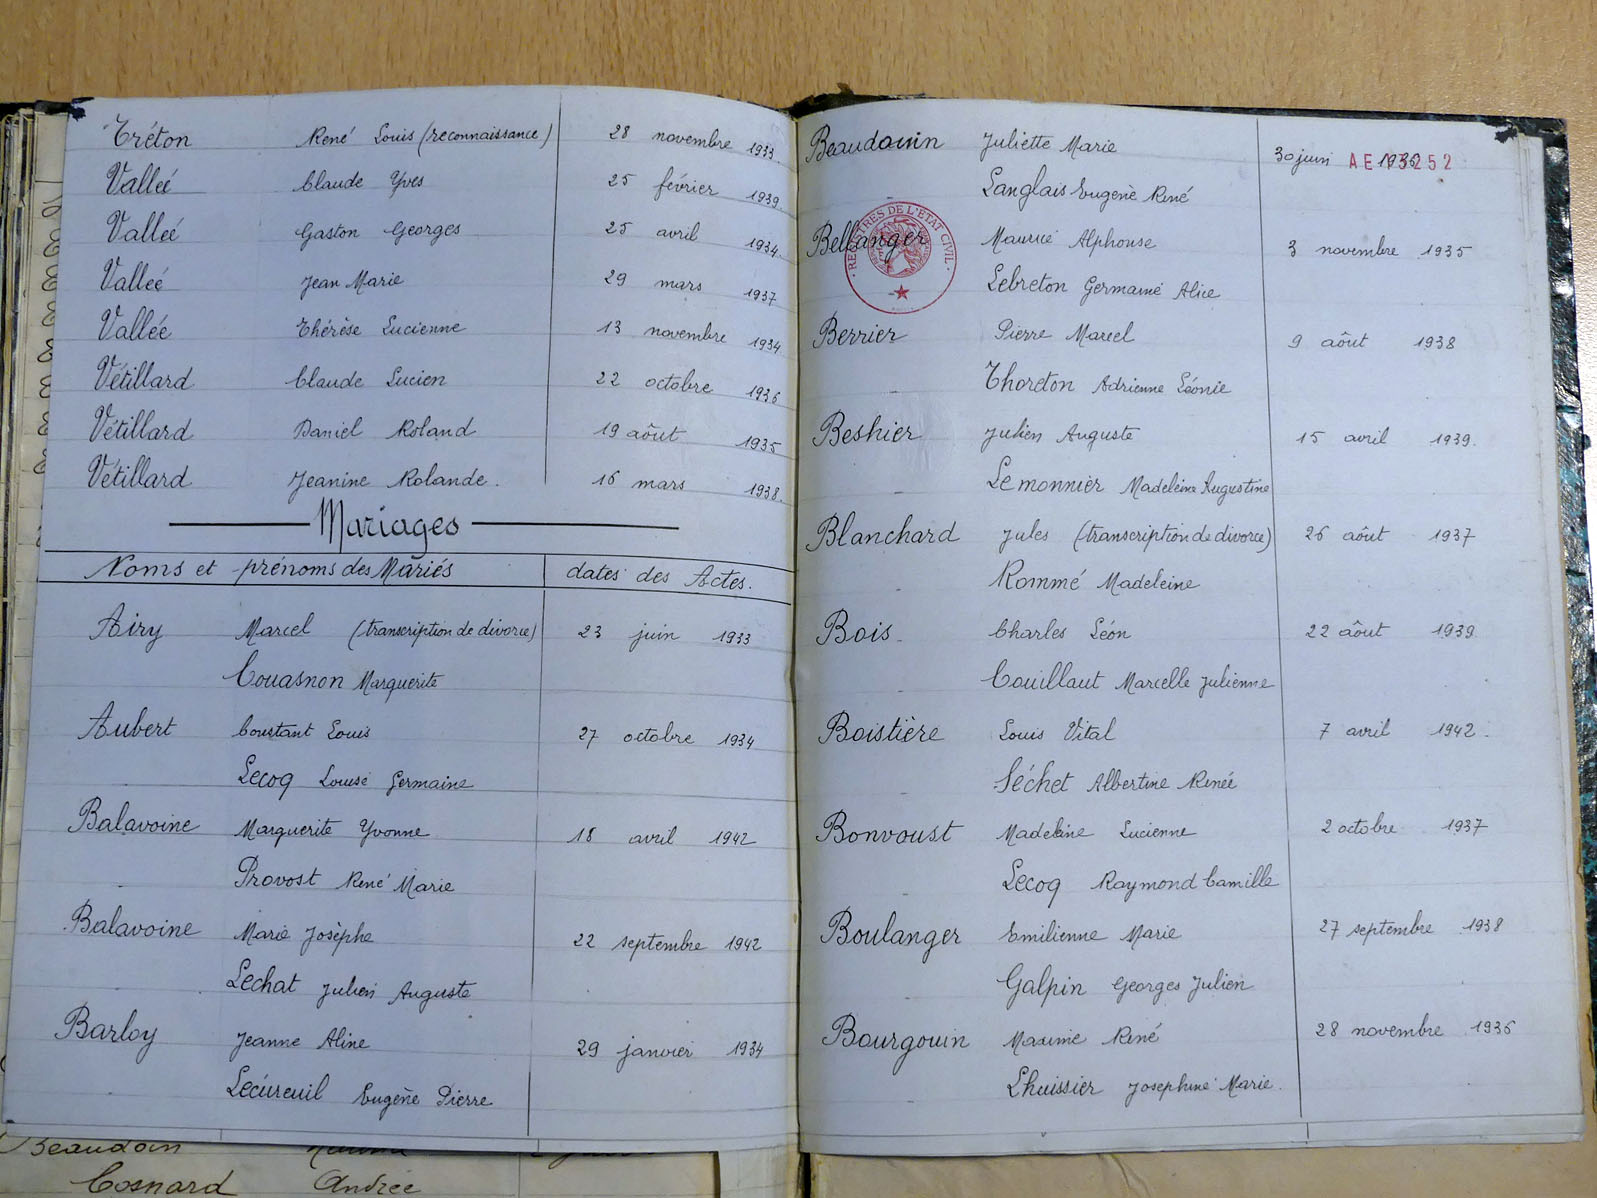 Tréton René Louis (reconnaissance) 28 novembre 1933.
Valleé Claude Yves 25 février 1939.
Valleé Gaston Georges 25 avril 1934.
Valleé Jean Marie 29 mars 1937
Vallée Thérèse Lucienne 13 novembre 1934
Vétillard Claude Lucien 22 octobre 1936
Vétillard Daniel Roland 19 aôut 1935
Vétillard Jeanine Rolande. 16 mars 1938.
Mariages
Noms et prénoms des Mariés dates des Actes.
Airy Marcel (transcription de divorce) 23 juin 1933
Couasnon Marguerite
Aubert Constant Louis 27 octobre 1934
Lecoq Louise Germaine
Balavoine Marguerite Yvonne 18 avril 1942
Provost René Marie
Balavoine Marie Josèphe 22 septembre 1942
Lechat Julien Auguste
Barloy Jeanne Aline 29 janvier 1934
Lecureuil Eugène Pierre
Beaudoin
Cosnard Andrée
Beaudouin Juliette Marie 30 juin
Langlais Eugène René
REGISTRES DE L'ETAT CIVIL
Bellanger Maurice Alphonse 3 novembre 1935
Lebreton Germaine Alice
Berrier Pierre Marcel 9 aôut 1938
Thoreton Adrienne Léonie
Beshier Julien Auguste 15 avril 1939.
Lemonnier Madeleine Augustine
Blanchard Jules (transcription de divorce) 26 aôut 1937
Rommé Madeleine
Bois Charles Léon 22 aôut 1939
Couillaut Marcelle Julienne
Boistière Louis Vital 7 avril 1942.
Séchet Albertine Renée
Bonvoust Madeleine Lucienne 2 octobre 1937
Lecoq Raymond Camille
Boulanger Emilienne Marie 27 septembre 1938
Galpin Georges Julien
Bourgouin Maxime René 28 novembre 1936
Lhuissier Josephine Marie.